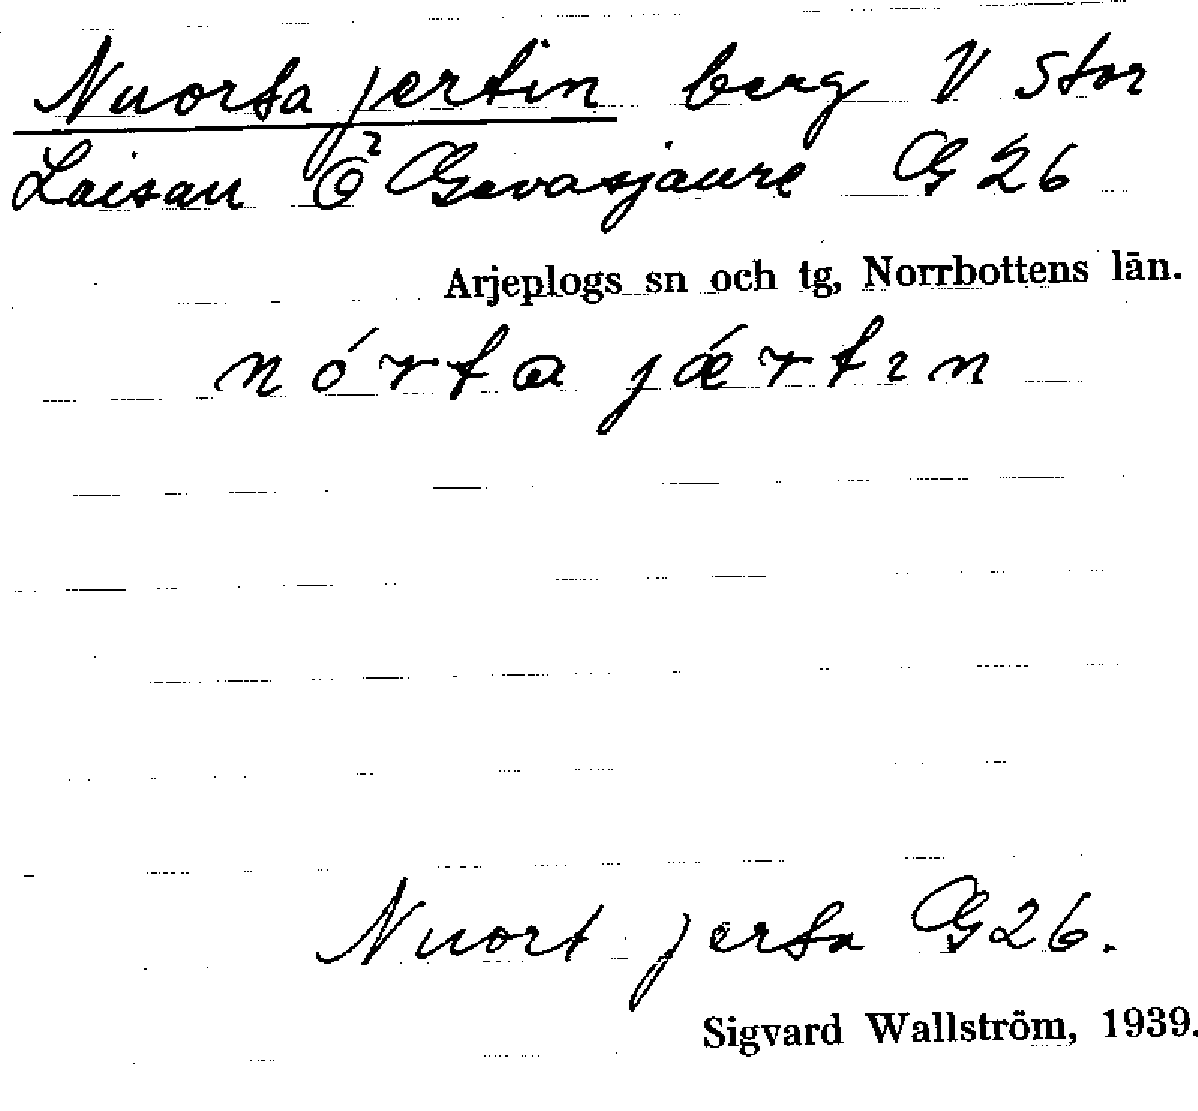 Nuorta jertin berg V Stor
Laisan Ö² Gevasjaure G 26
Arjeplogs sn och tg, Norrbottens län.
nórta jǽrtın
Nuort jerta G 26.
Sigvard Wallström, 1939.